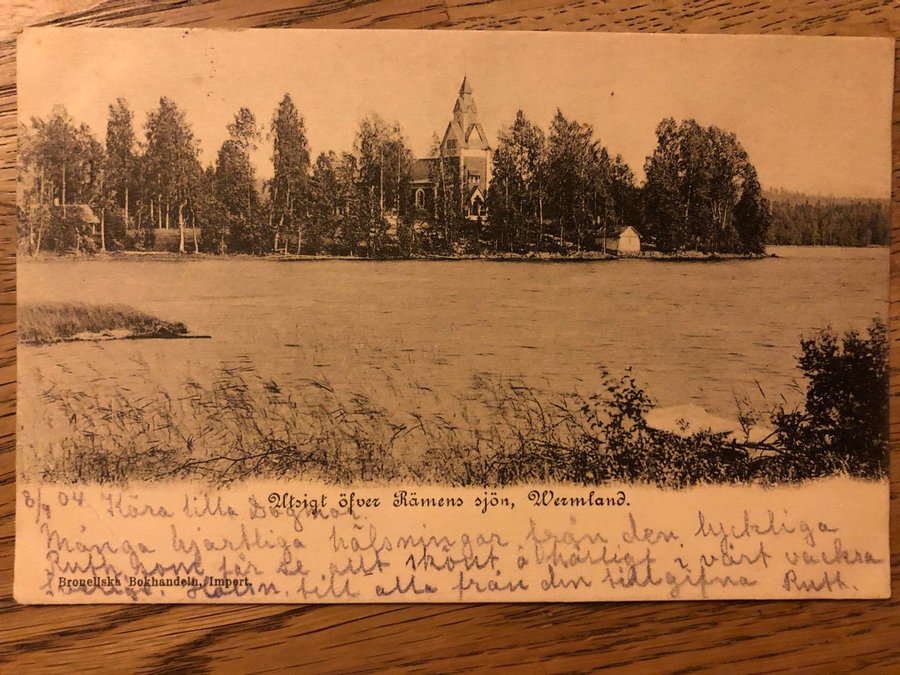 Utsigt öfver Rämens sjön, Wermland.
3/9 04. Kära lilla Dagmar
Många hjärtliga hälsningar från den lyckliga
Ruth som får se allt skönt o härligt i vårt vackra
Sverige. Hälsn. till alla från din tillgifna Ruth.
Bronellska Bokhandeln, Import.